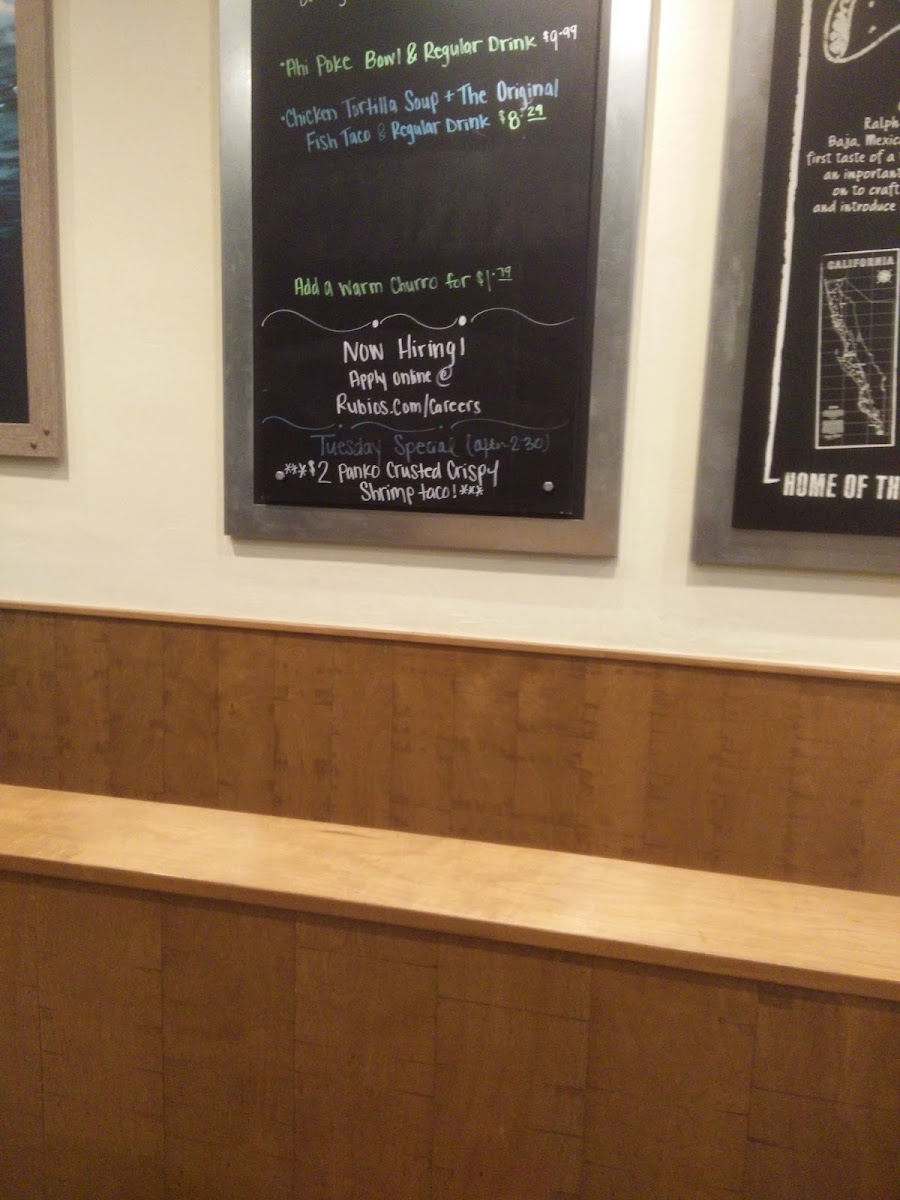 •Ahi Poke Bowl & Regular Drink $9.99
•Chicken Tortilla Soup + The Original
Fish Taco & Regular Drink $8.29
Add a warm Churro for $1.79
Now Hiring!
Apply online @
Rubios.Com/Careers
Tuesday Special (after 2:30)
***$2 Panko Crusted Crispy
Shrimp taco!***
Ralph
Baja, Mexic
first taste of a
an important
on to craft
and introduce
CALIFORNIA
HOME OF TH